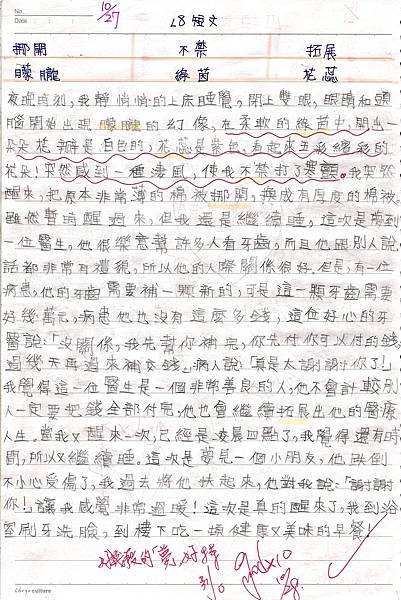 No.
Date
10/27
L8短文
挪開 不禁 拓展
朦朧 綠茵 花蕊
夜晚時刻，我靜悄悄的上床睡覺，閉上雙眼，眼睛和頭
腦開始出現朦朧的幻像，在柔軟的綠茵中，開出一
朵朵花瓣是白色的，花蕊是紫色，看起來五彩繽紛的
花朵！突然感到一種淒風，使我不禁打了寒顫。我突然
醒來，把原本非常薄的棉被挪開，換成有厚度的棉被。
雖然暫時醒過來，但我還是繼續睡，這次是夢到
一位醫生，他很樂意幫許多人看牙齒，而且他跟別人說
話都非常有禮貌，所以他的人際關係很好。但是，有一位
病患，他的牙齒需要補一顆新的，可是這一顆牙齒需要
好幾萬元，病患他也沒有這麼多錢，這位好心的牙
醫說：「沒關係，我先幫你補完，你先付你可以付的錢，
過幾天再過來補交錢」，病人說「真是太謝謝你了！」
我覺得這一位醫生是一個非常善良的人，他不會計較別
人一定要把錢全部付完，他也會繼續拓展出他的醫療
人生。當我又醒來一次，已經是凌晨四點了，我覺得還有時
間，所以繼續睡。這次是夢見一個小朋友，他跌倒
不小心受傷了，我過去將他扶起來，他對我說：「謝謝
你！」讓我感覺非常溫暖！這次是真的醒來了，我到浴
室刷牙洗臉，到樓下吃一頓健康又美味的早餐！
10/28
Chuyu culture